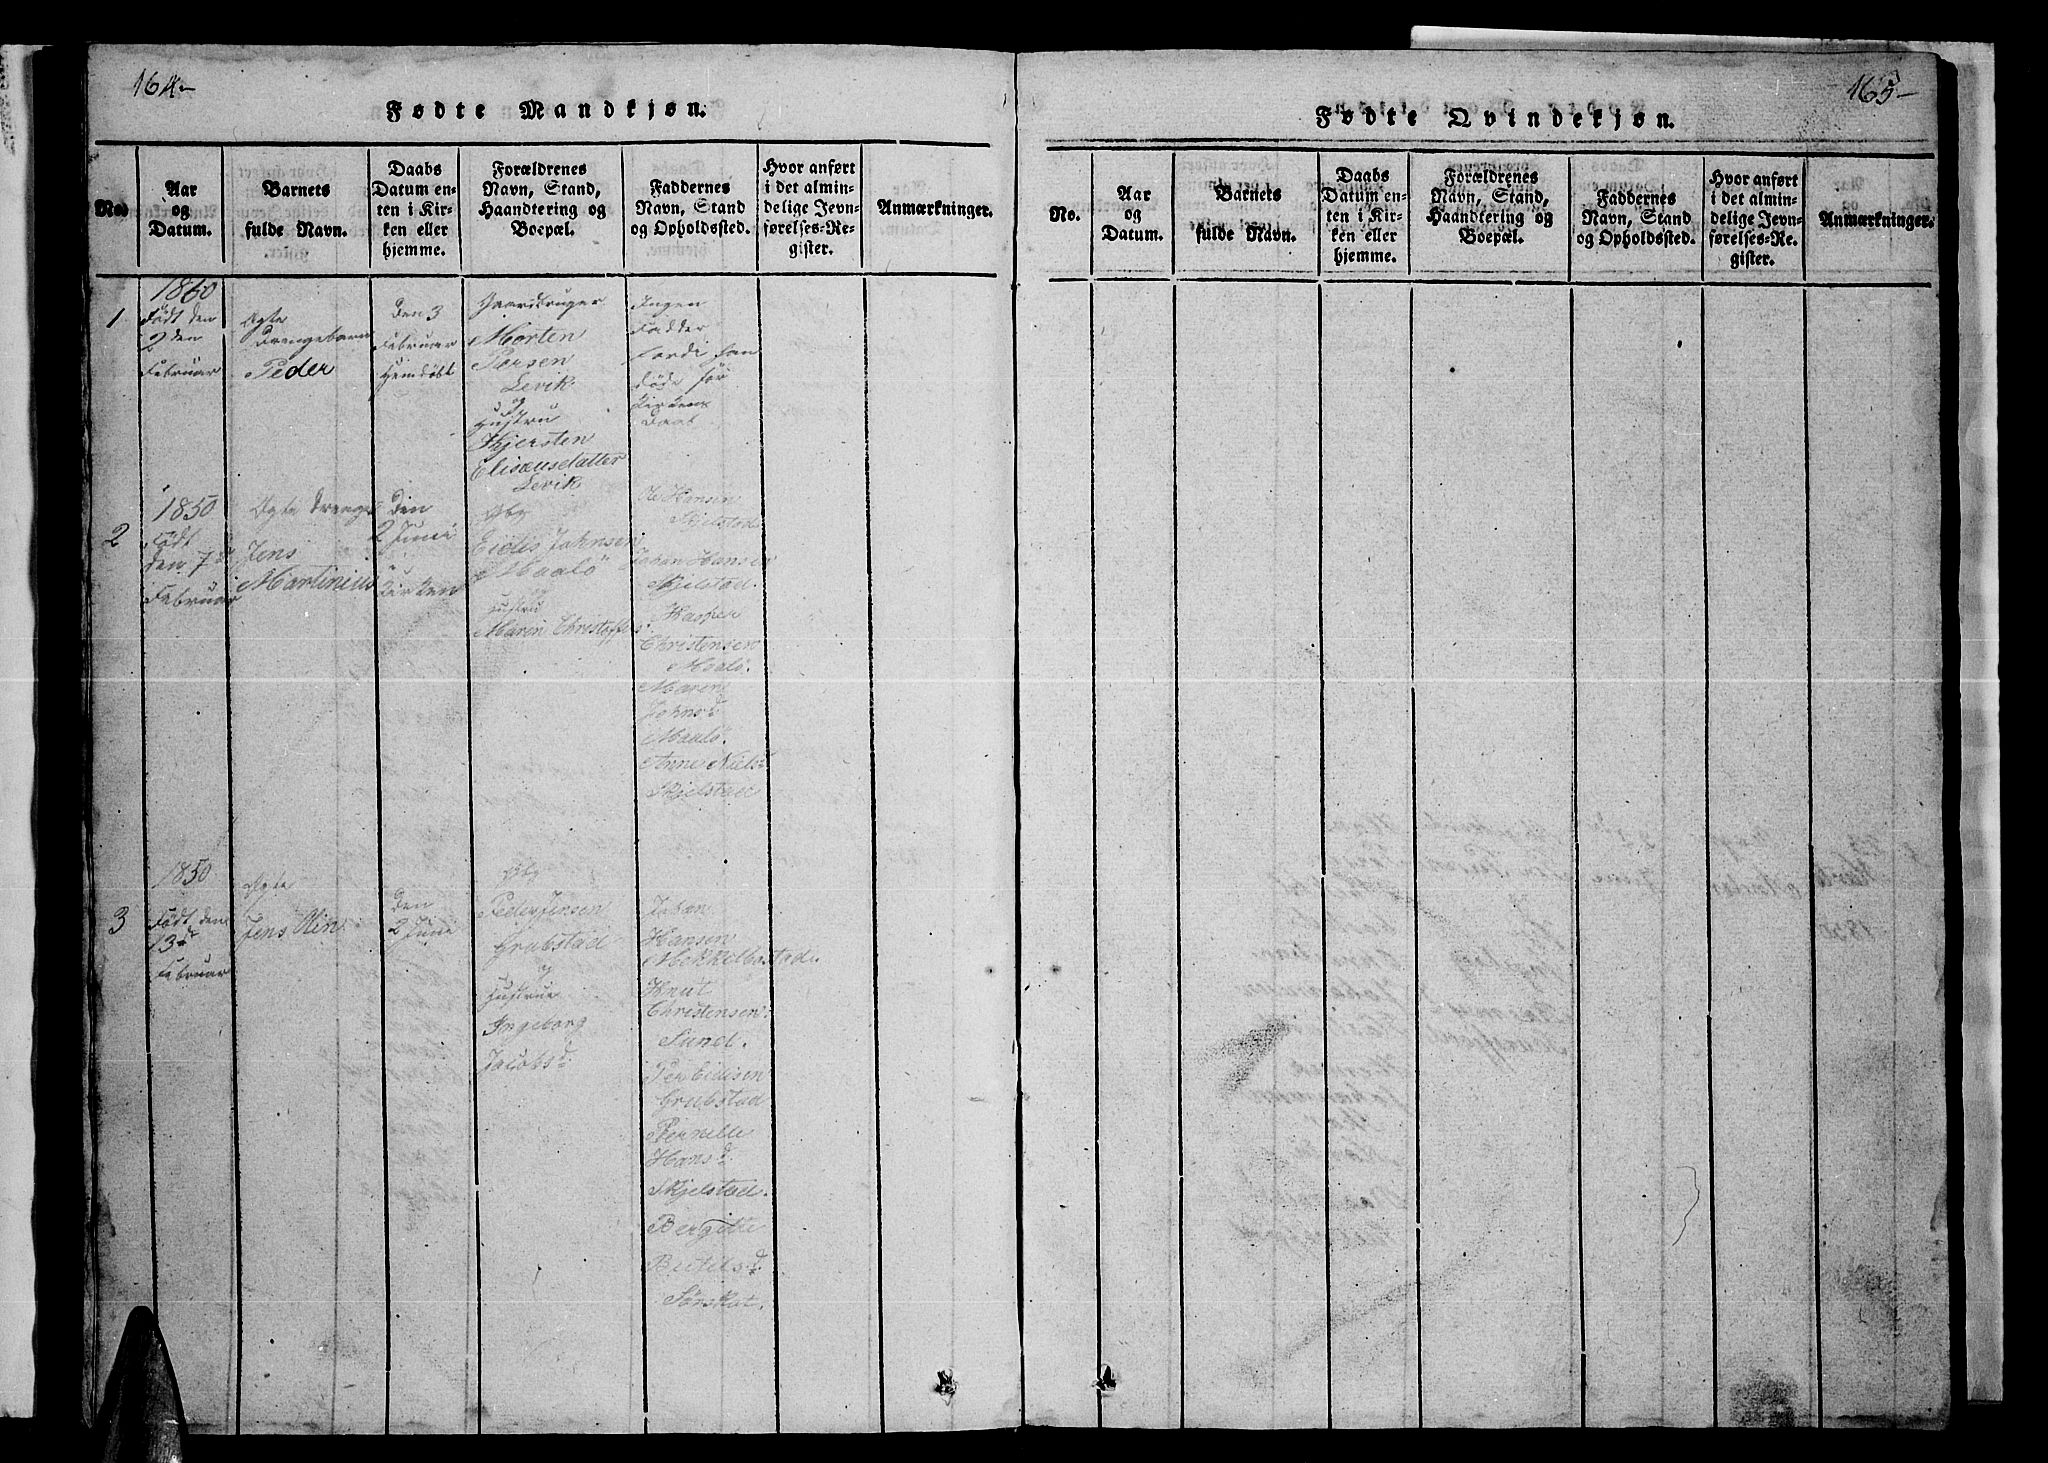 164-
Fødte Mandkjøn.
No.
Aar
og
Datum.
Barnets
fulde Navn.
Daabs
Datum en-
ten i Kir-
ken eller
hjemme.
Forældrenes
Navn, Stand,
Haandtering og
Boepæl.
Faddernes
Navn, Stand
og Opholdssted.
Hvor anført
i det almin-
delige Jevn-
førelses-Re-
gister.
Anmærkninger.
1
1850
Født den
2den
Februar
Ægte
Drengebarn
Peder
Den 3
Februar
Hjemdøbt
Gaardbruger
Morten
Persen
Levik
og
Hustru
Kjersten
Elisæusdatter
Levik
Ingen
Fadder
Fordi han
døde før
Kirkens
Daab
2
1850
Født
den 7de
Februar
Ægte Drenge
Jens
Martinius
Den
2 Juni
i
Kirken
Gbr
Eidis Johnsen
Maalö
og
Hustru
Maren Christoffs
Ole Hansen
Skjelstad
Johan Hansen
Skjelstad.
Kasper
Christensen
Maalö.
Maren
Johnsd
Maalö.
Anne Nielsd
Skjelstad
3
1850
Født den
13de
Februar
Ægte
Jens Olin
den
2 Juni
Gbr
Peder Jensen
Grubstad
og
Hustrue
Ingeborg
Jacobsd
Johan
Hansen
Mekkelbostad.
Knut
Christensen
Sund.
Per Eidisen
Grubstad
Pernille
Hansd
Skjelstad.
Bergitte
Beritelsd
Sørskot.
165-
Fødte Qvindekjøn.
No.
Aar
og
Datum.
Barnets
fulde Navn.
Daabs
Datum en-
ten i Kir-
ken eller
hjemme.
Forældrenes
Navn, Stand,
Haandtering og
Boepæl.
Faddernes
Navn, Stand
og Opholdssted.
Hvor anført
i det almin-
delige Jevn-
førelses-Re-
gister.
Anmærkninger.